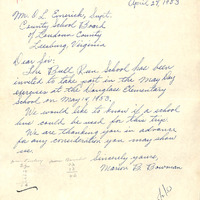 April 27, 1953
Mr. O. L. Emerick, Supt.
County School Board
of Loudoun County
Leesburg, Virginia
Dear Sir:
The Bull Run School has been
invited to take part in the May Day
exercises at the Douglass Elementary
School on May 15, 1953.
We would like to know if a school
bus could be used for this trip.
We are thanking you in advance
for any consideration you may show
us.
Sincerely yours,
Marion B. Bowman